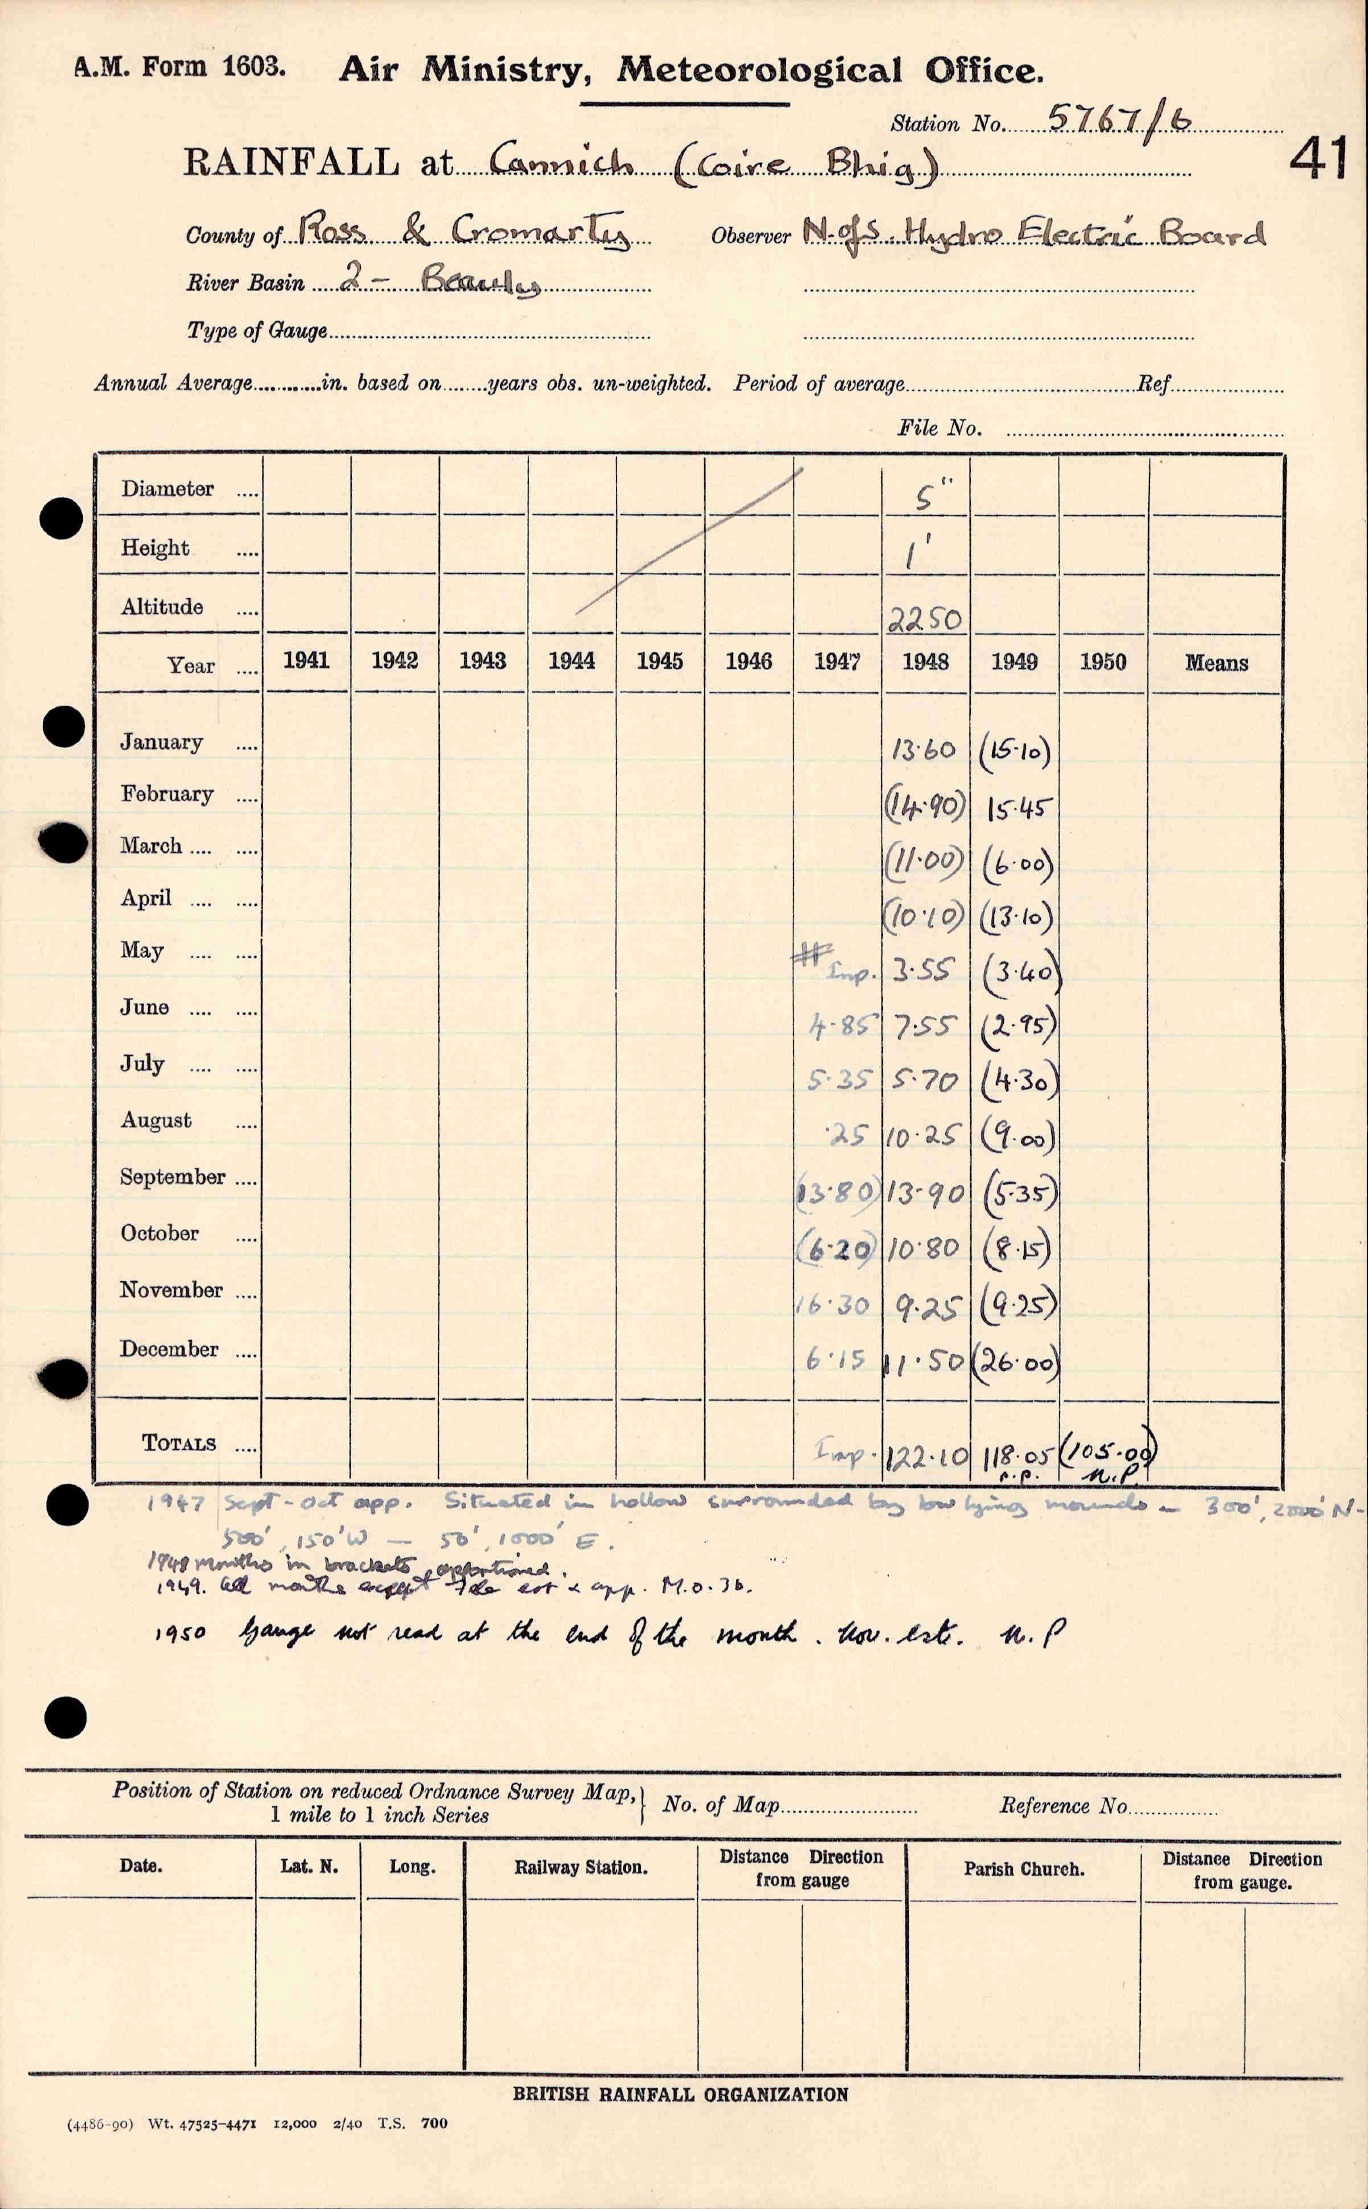 A.M. Form 1603. Air Ministry, Meteorological Office.
Station No. 5767/6
41
RAINFALL at Cannich (Coire Bhig)
County of Ross & Cromarty Observer N. of S. Hydro Electric Board
River Basin 2 - Beauly
Type of Gauge
Annual Average in. based on years obs. un-weighted. Period of average Ref.
File No.
Diameter .... 5"
Height .... 1'
Altitude .... 2250
Year .... 1941 1942 1943 1944 1945 1946 1947 1948 1949 1950 Means
January .... 13·60 (15·10)
February .... (14·90) 15·45
March .... .... (11·00) (6·00)
April .... .... (10·10) (13·10)
May .... .... # Imp. 3·55 (3·40)
June .... .... 4·85 7·55 (2·95)
July .... .... 5·35 5·70 (4·30)
August .... ·25 10·25 (9·00)
September .... (13·80) 13·90 (5·35)
October .... (6·20) 10·80 (8·15)
November .... 16·30 9·25 (9·25)
December .... 6·15 11·50 (26·00)
TOTALS .... Imp. 122·10 118·05 (105·00)
n.p. n.P
1947 Sept-Oct app. Situated in hollow surrounded by low lying mounds - 300', 2000' N-
500', 150' W - 50', 1000' E.
1948 months in brackets apportioned.
1949. All months except Feb est & app. M.O.3b.
1950 Gauge not read at the end of the month. Nov. est. n.P
Position of Station on reduced Ordnance Survey Map, } No. of Map Reference No.
1 mile to 1 inch Series
Date. Lat. N. Long. Railway Station. Distance Direction from gauge Parish Church. Distance Direction from gauge.
BRITISH RAINFALL ORGANIZATION
(4486-90) Wt. 47525-4471 12,000 2/40 T.S. 700